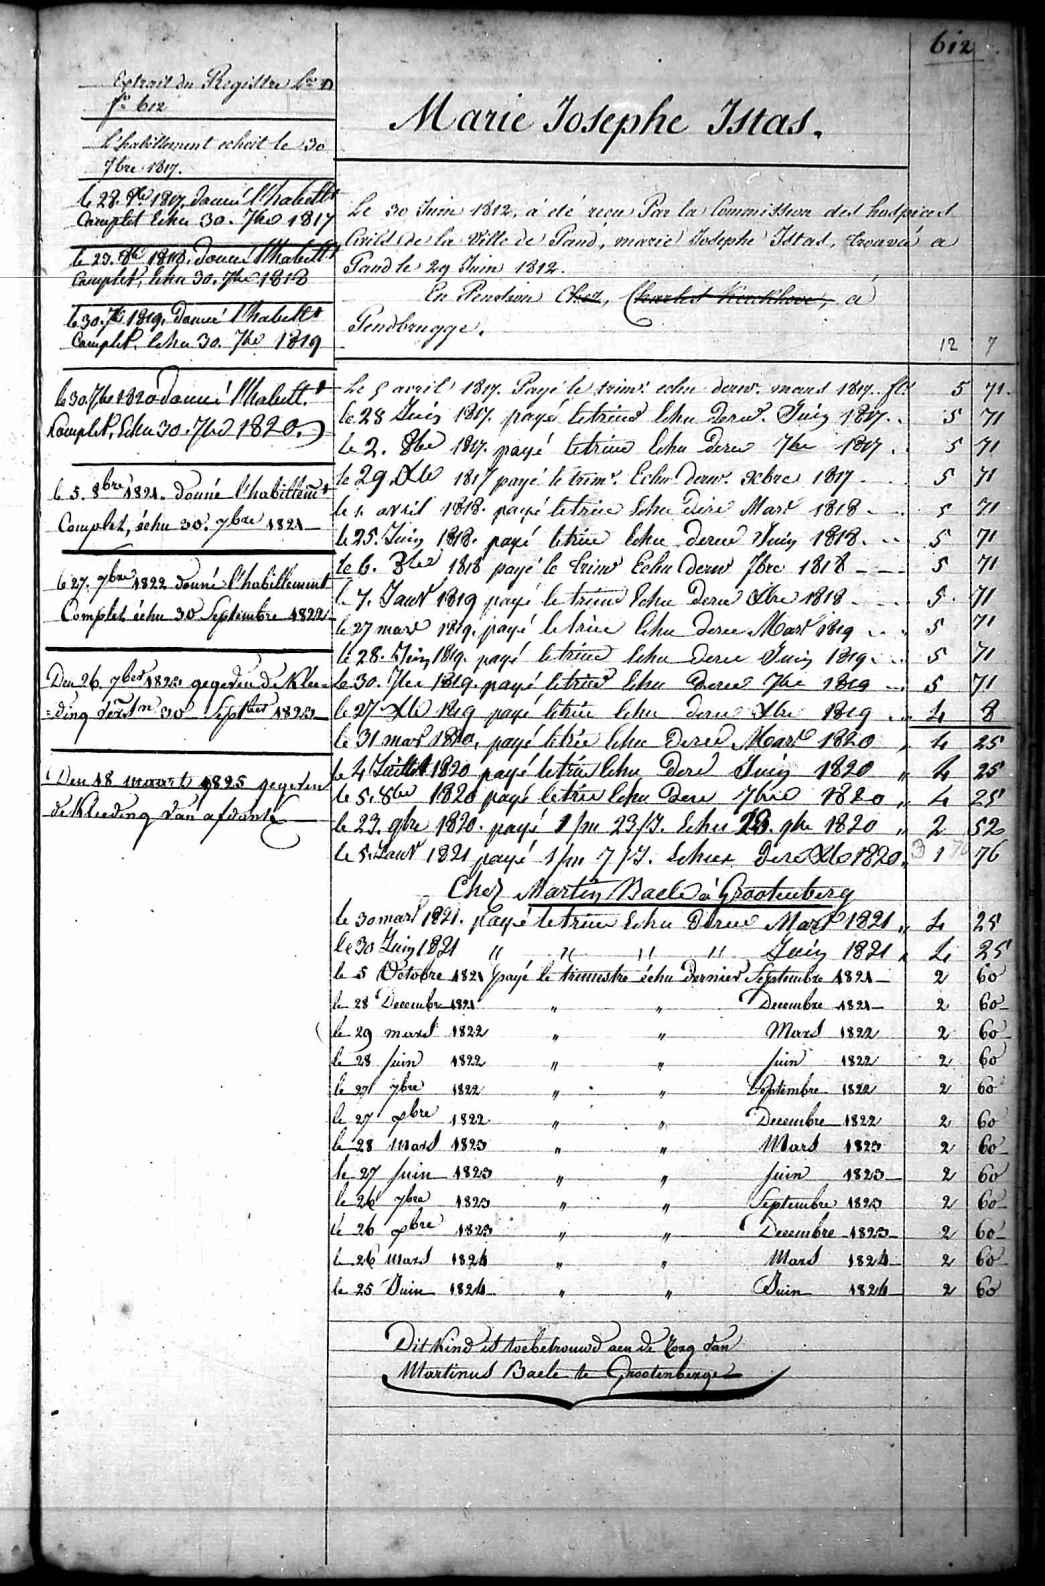 612
Extrait du Registre
fo 612
l'habillement echoit le 30
7bre 1817.
le 28. Xbre 1817, donné l'habillt
Complet Echu 30. 7bre 1817
le 23. 1818. donné l'habillt
Complet, Echu 30. 7bre 1818
le 30. 7bre 1819. donné l'habillt
Complet. Echu 30. 7bre 1819
le 30. 7bre 1820 donné l'habillt.
Complet, Echu 30. 7bre 1820.
le 5. 8bre 1821. donné l'habillemt
Complet, échu 30. 7bre 1821
le 27. 7bre 1822 donné l'habillement
Complet échu 30 Septembre 1822
Den 26. 7ber 1823 gegeven de Klee-
=ding 30 Septber 1823
Den 18 maart 1825 gegeven
de Kleeding van afstand
Marie Josephe Istas.
Le 30 Juin 1812, a été recu Par la Commission des hospices
Civils de la Ville de Gand, marie Josephe Istas, trouvée a
Gand le 29 Juin 1812.
En Pension Chez, Charles Kerkhove, á
Gendbrugge.
12 7
Le 5 avril 1817. Payé le trimr. echu dernr. mars 1817. fls 5 71.
le 28 Juin 1817. payé le trim Echu dernr. Juin 1817. 5 71
le 2. 8bre 1817. payé le trim Echu dern 7bre 1817 5 71
le 29 Xbre 1817 payé le trimr. Echu dernr. xbre 1817 5 71
le 1. avril 1818. payé le trim Echu dern Mars 1818 5 71
le 25. Juin 1818. payé le trim Echu dern Juin 1818. 5 71
le 6. 8bre 1818 payé le trimr Echu dernr 7bre 1818 5 71
le 7. Janvr 1819 payé le trim Echu dern Xbre 1818 5 71
le 27 mars 1819. payé le trim Echu dern Mars 1819 5 71
le 28. Juin 1819. payé le trim Echu dern Juin 1819. 5 71
le 30. 7bre 1819. payé le trim Echu dern 7bre 1819 5 71
le 27 Xbre 1819 payé le trim Echu dern Xbre 1819 4 8
le 31 mars 1820, payé le trim Echu dern Mars 1820 " 4 25
le 4 Juillet 1820 payé le trim Echu dern Juin 1820 " 4 25
le 5. 8bre 1820 payé le trim Echu dern 7bre 1820 " 4 25
le 23. 9bre 1820. payé 1/m 23/J. Echu 23. 9bre 1820 " 2 52
le 5. Janvr 1821 payé 1/m 7/J. Echu dern Xbre 1820 " 1 76
Chez Martin Baele à Grootenberg
le 30 mars 1821. payé le trim Echu dern Mars 1821 " 4 25
le 30 Juin 1821 " " " " Juin 1821 " 4 25
le 5 Octobre 1821 payé le trimestre échu dernier Septembre 1821 2 60
le 28 Decembre 1821 " " Decembre 1821 2 60
le 29 mars 1822 " " Mars 1822 2 60
le 28 juin 1822 " " juin 1822 2 60
le 27 7bre 1822 " " Septembre 1822 2 60
le 27 xbre 1822 " " Decembre 1822 2 60
le 28 mars 1823 " " Mars 1823 2 60
le 27 juin 1823 " " juin 1823 2 60
le 26 7bre 1823 " " Septembre 1823 2 60
le 26 xbre 1823 " " Decembre 1823 2 60
le 26 mars 1824 " " Mars 1824 2 60
le 25 Juin 1824 " " Juin 1824 2 60
Dit Kind is toebetrouwd aen de Zorg van
Martinus Baele te Grootenberge